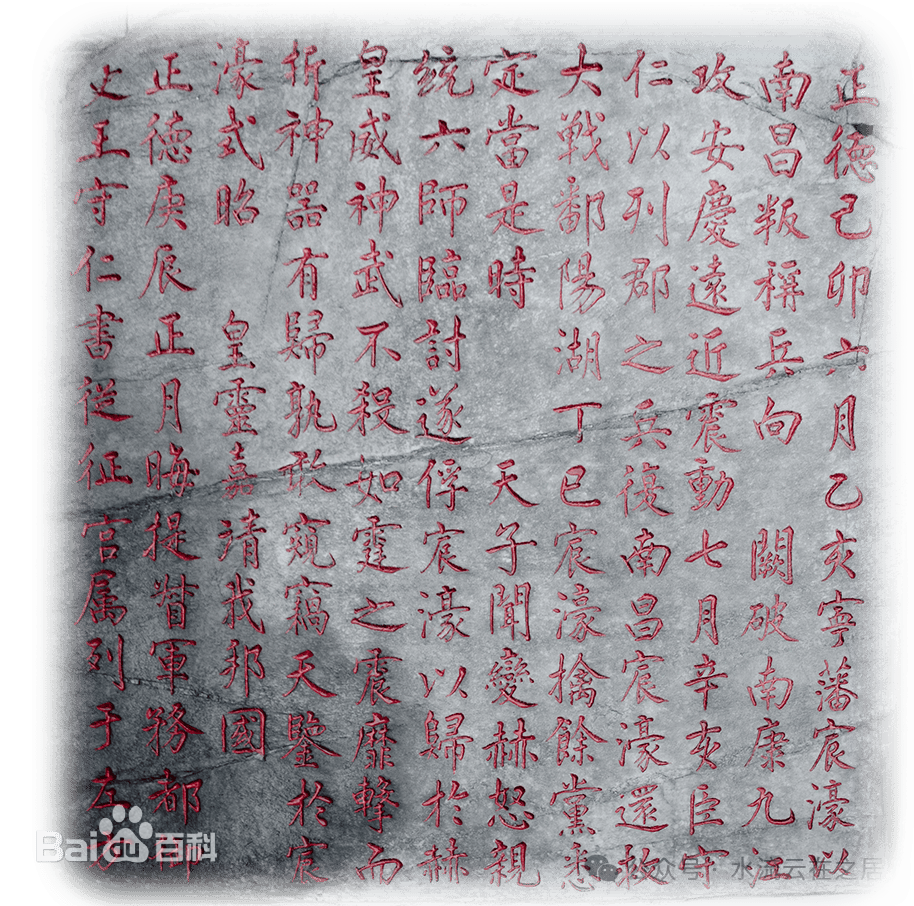 正德己卯六月乙亥寧藩宸濠以
南昌叛稱兵向 闕破南康九江
攻安慶遠近震動七月辛亥臣守
仁以列郡之兵復南昌宸濠還救
大戰鄱陽湖丁巳宸濠擒餘黨悉
定當是時 天子聞變赫怒親
統六師臨討遂俘宸濠以歸於赫
皇威神武不殺如霆之震靡擊而
折神器有歸孰敢窺竊天鑒於宸
濠式昭 皇靈嘉靖我邦國
正德庚辰正月晦提督軍務都御
史王守仁書從征官属列于左
Bai百科
公众号